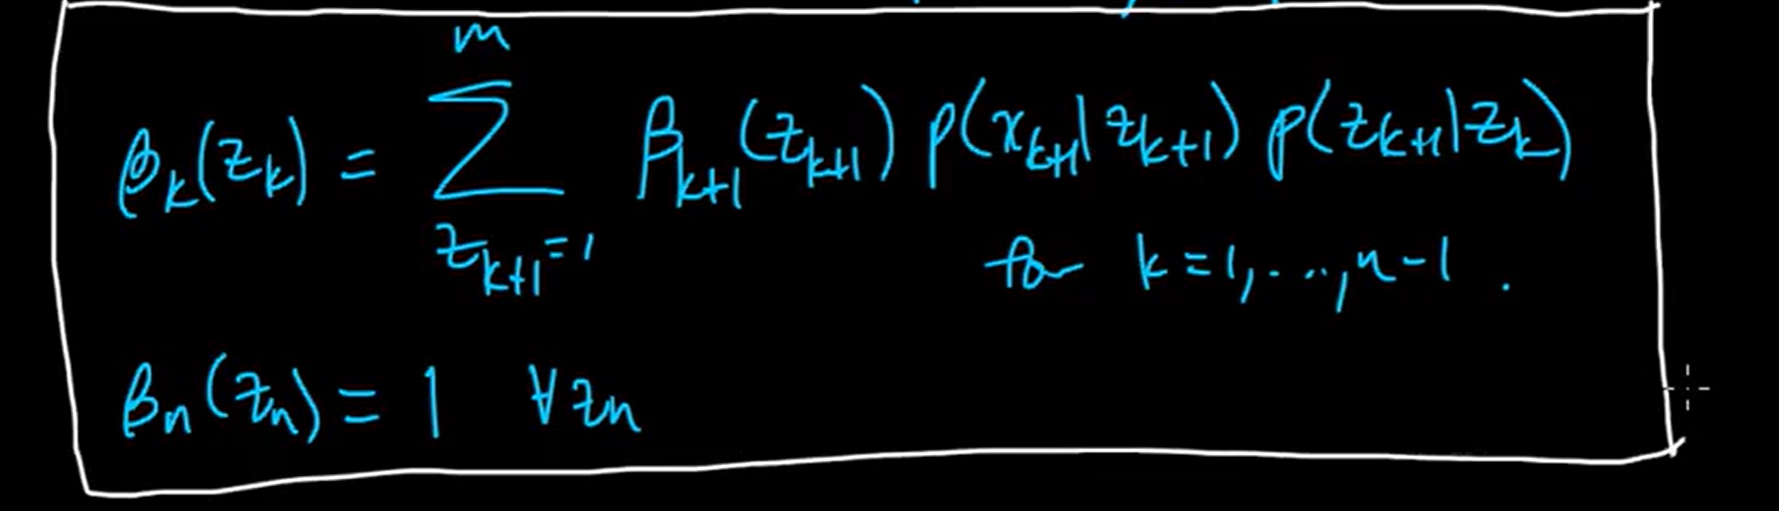 β_k(z_k) = Σ_{z_{k+1}=1}^{m} β_{k+1}(z_{k+1}) p(x_{k+1}|z_{k+1}) p(z_{k+1}|z_k)
for k=1,...,n-1.
β_n(z_n) = 1 ∀z_n